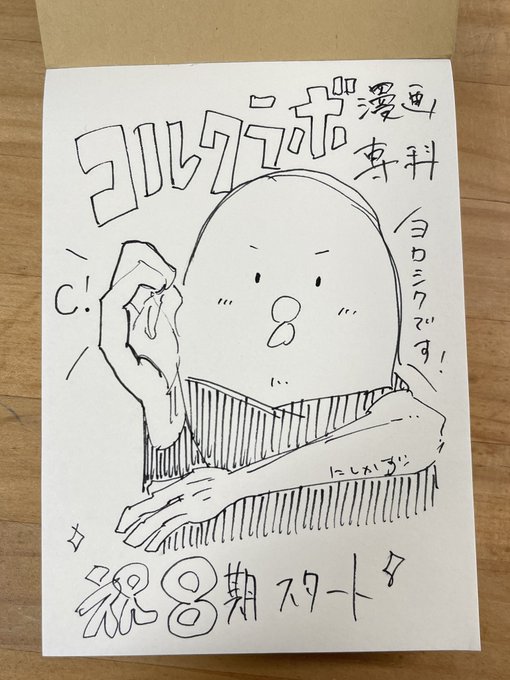 コルクラボ漫画
専科
ヨロシクです!
C!
にしかず
祝8期スタート